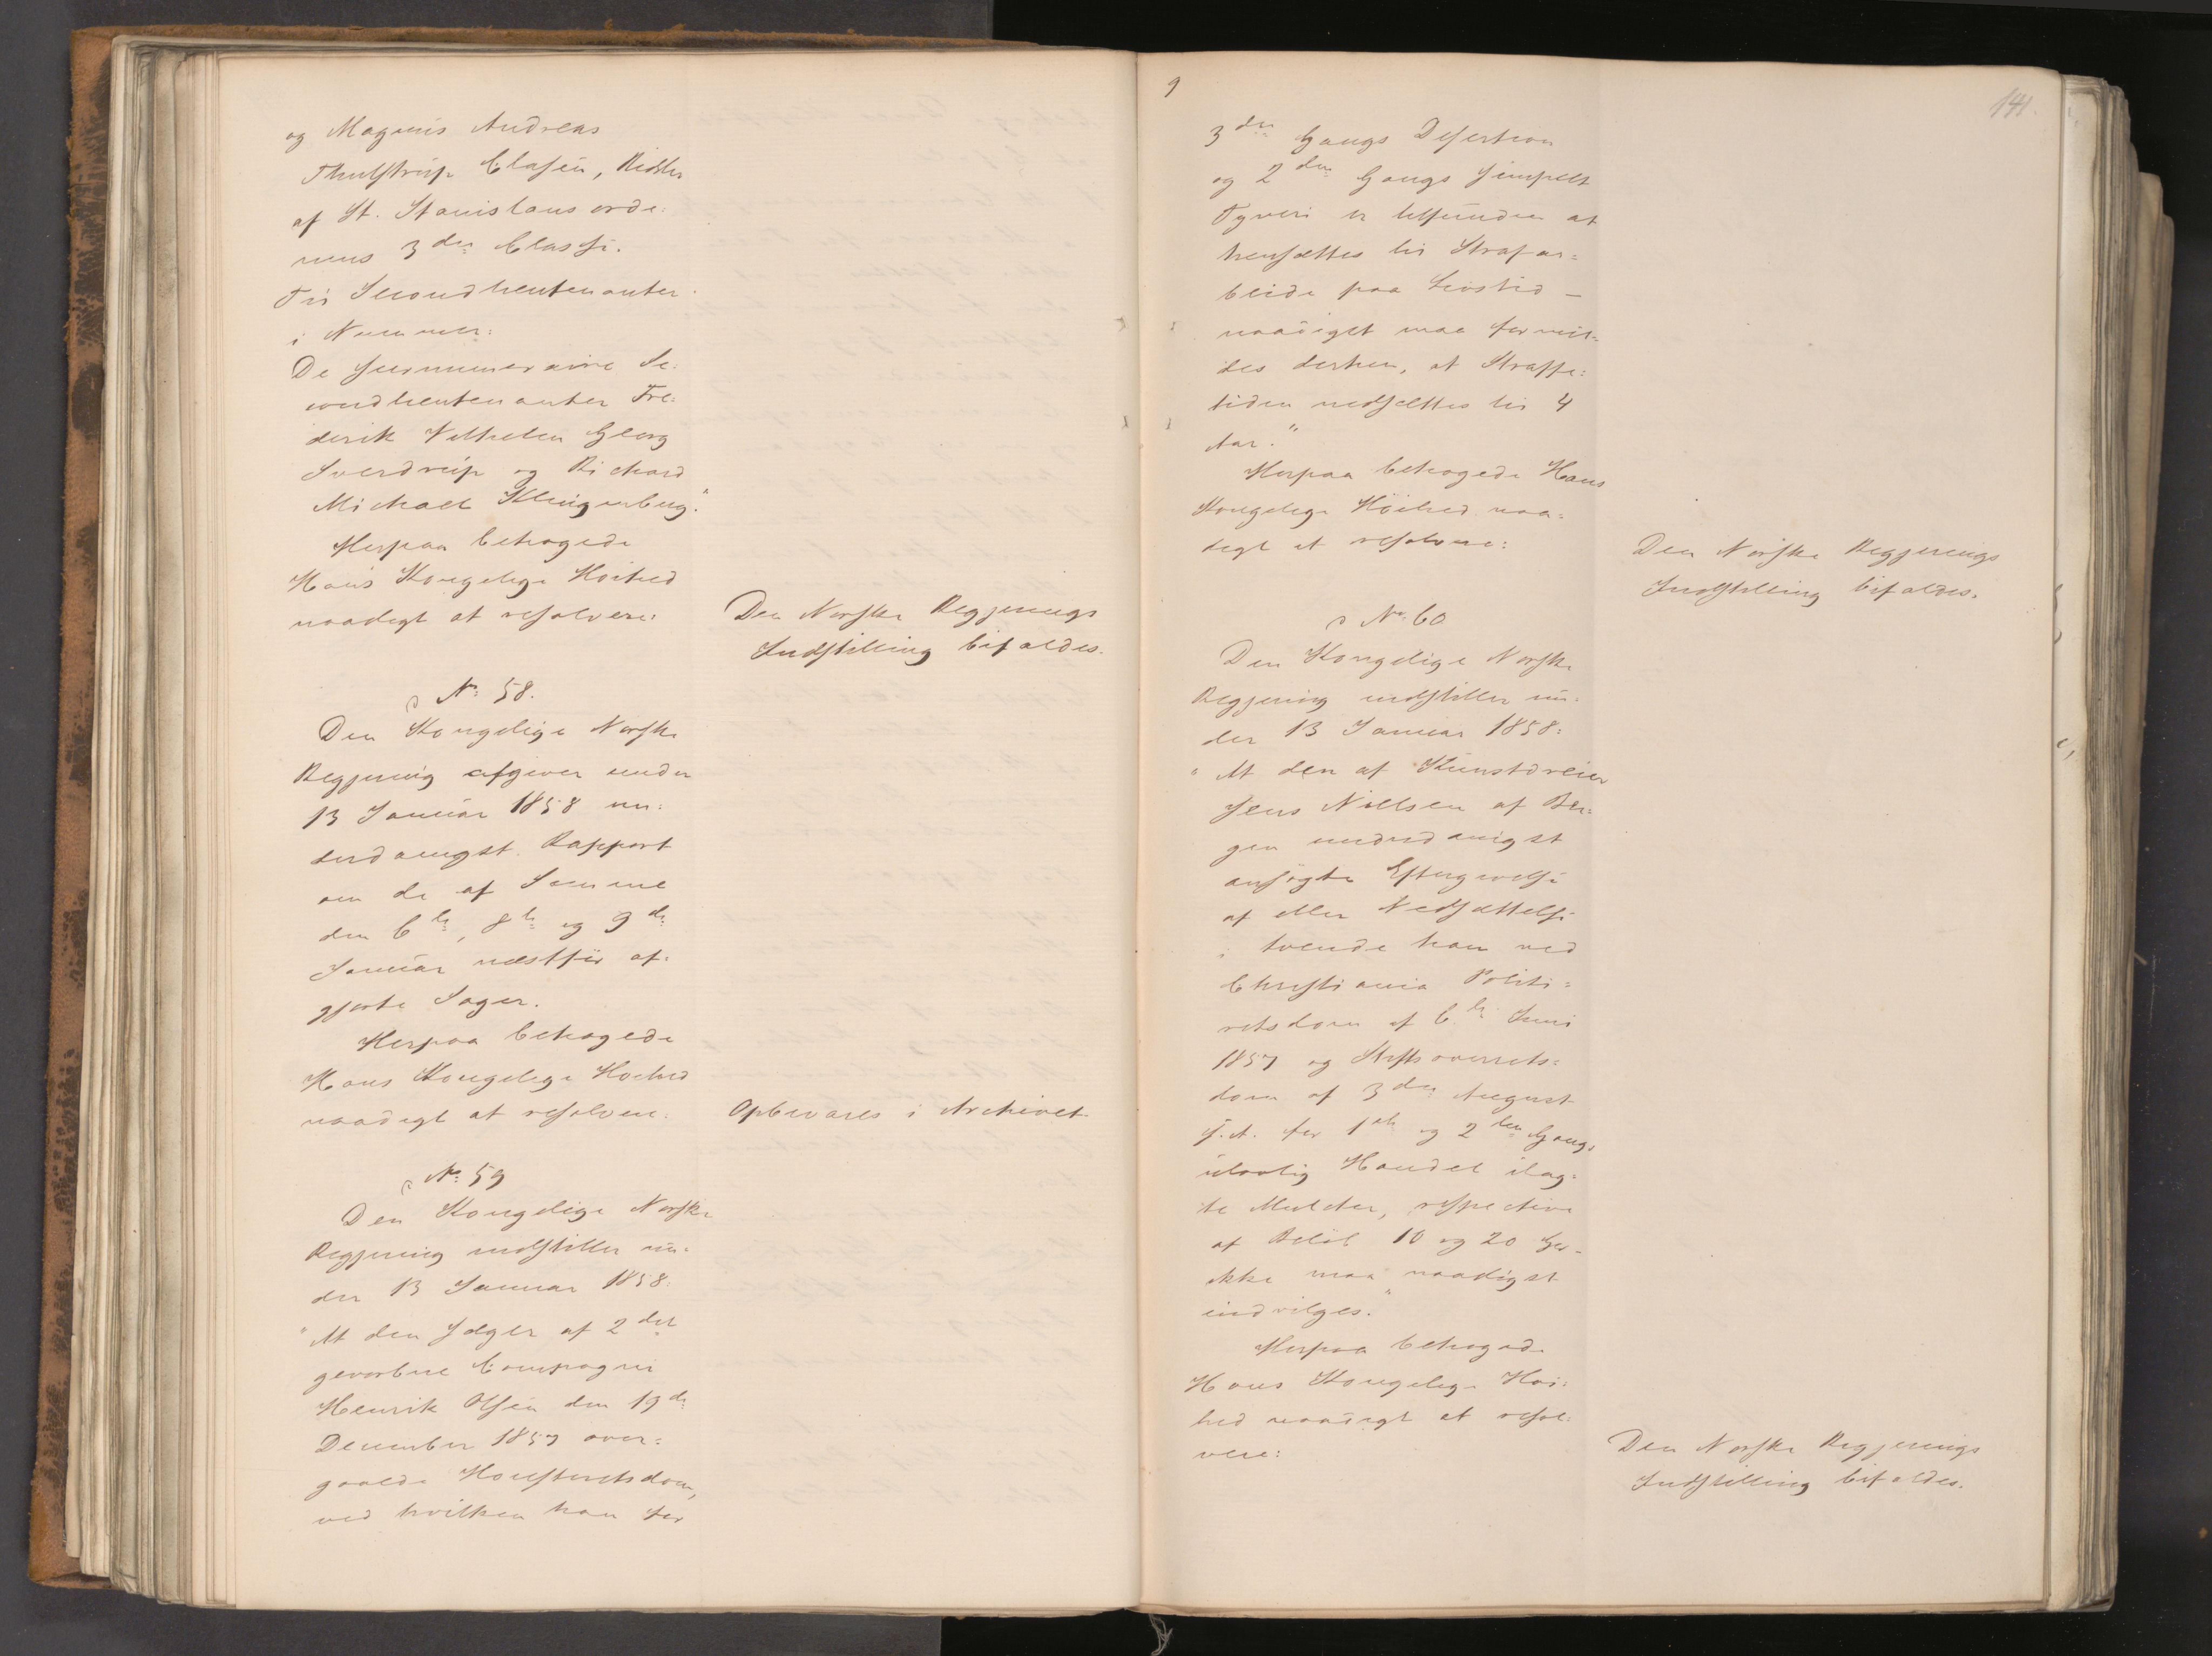 og Magnus Andreas
Thulstrup Clasen, Ridder
af St. Stanislaus orde:
nens 3die Classe.
Til Secondlieutenanter
i Nummer:
De surnumeraire Se:
condlieutenanter Fre:
derik Vilhelm Georg
Sverdrup og Richard
Michael Klingenberg."
Herpaa behagede
Hans Kongelige Høihed
naadigst at resolvere:
Den Norske Regjerings
Indstilling bifaldes.
No 58.
Den Kongelige Norske
Regjering afgiver under
13 Januar 1858 un:
derdanigst Rapport
om de af Samme
den 6te, 8de og 9de
Januar næstfør af:
gjorte Sager.
Herpaa behagede
Hans Kongelige Høihed
naadigst at resolvere:
Opbevares i Archivet.
No 59
Den Kongelige Norske
Regjering indstiller un:
der 13 Januar 1858:
"At den Jæger af 2det
gevorbne Compagni
Henrik Olsen den 19de
December 1857 over:
gaaede Høiesteretsdom,
ved hvilken han for
9
141.
3die Gangs Desertion
og 2den Gangs simpelt
Tyveri er befunden at
hensættes til Strafar:
beide paa Livstid —
naadigst maa formil:
des derhen, at Straffe:
tiden nedsættes til 4
Aar."
Herpaa behagede Hans
Kongelige Høihed naa:
digst at resolvere:
Den Norske Regjerings
Indstilling bifaldes.
No 60
Den Kongelige Norske
Regjering indstiller un:
der 13 Januar 1858:
"At den af Kunstdreier
Jens Nielsen af Ber:
gen underdanigst
ansøgte Eftergivelse
af eller Nedsættelse
i tvende ham ved
Christiania Politi:
retsdom af 6te Juni
1857 og Stiftsoverrets:
dom af 3die August
s. A. for 1ste og 2den Gangs
ulovlig Handel ilag:
te Mulcter, respective
af Beløb 10 og 20
ikke maa naadigst
indvilges."
Herpaa behagede
Hans Kongelige Høi:
hed naadigst at resol:
vere:
Den Norske Regjerings
Indstilling bifaldes.